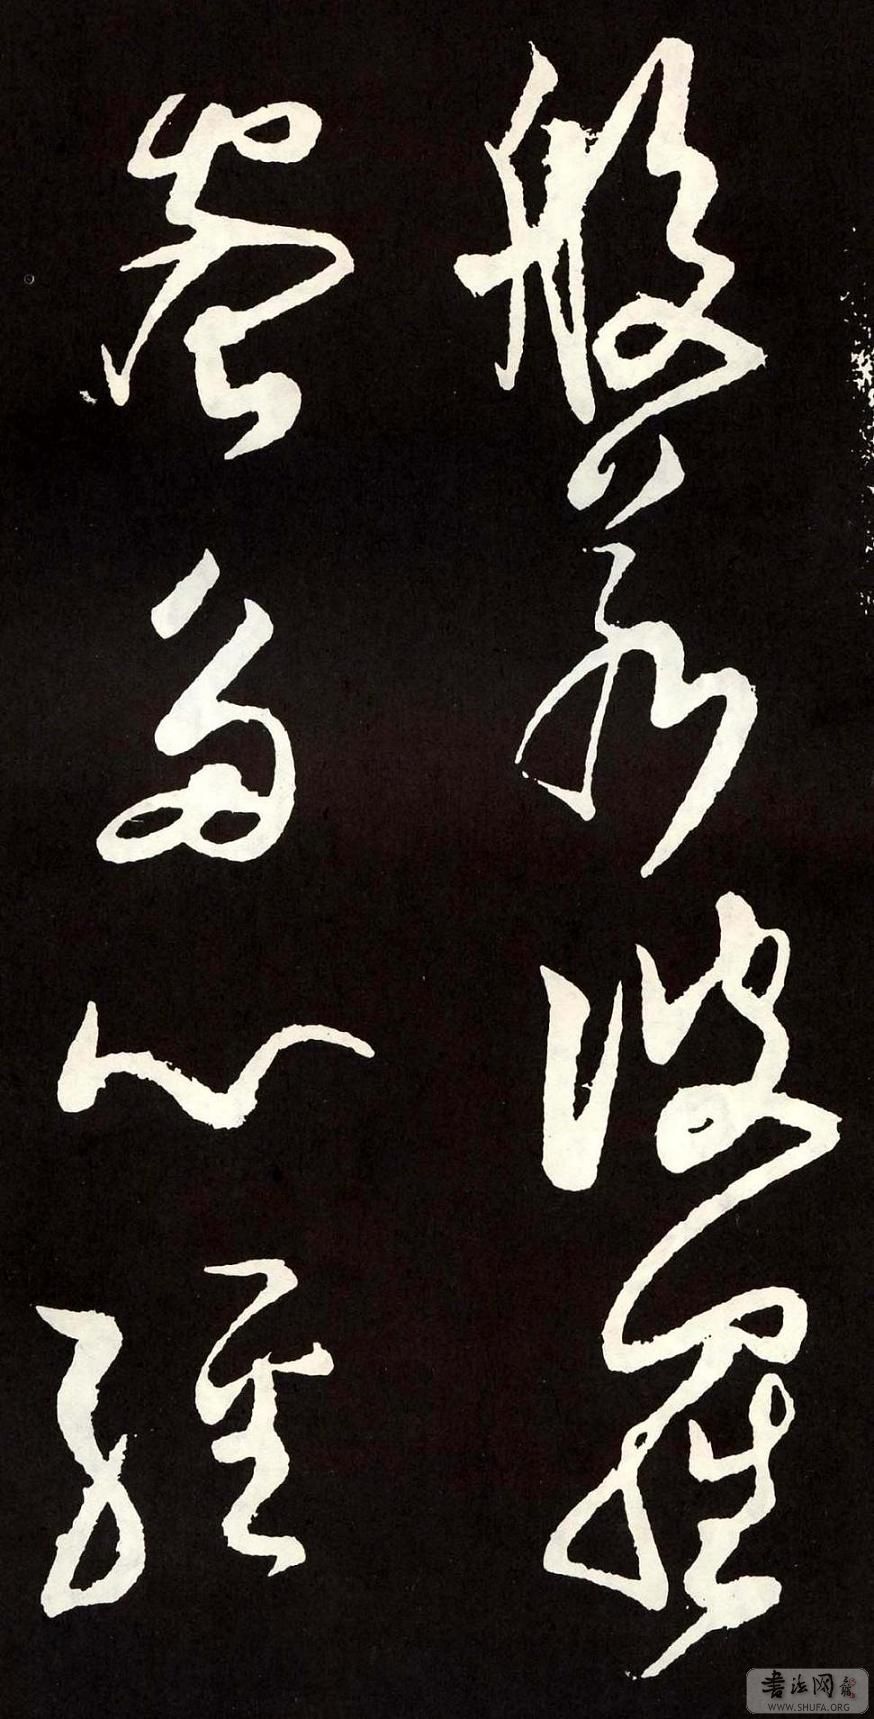 般若波羅
蜜多心經
書法网
WWW.SHUFA.ORG